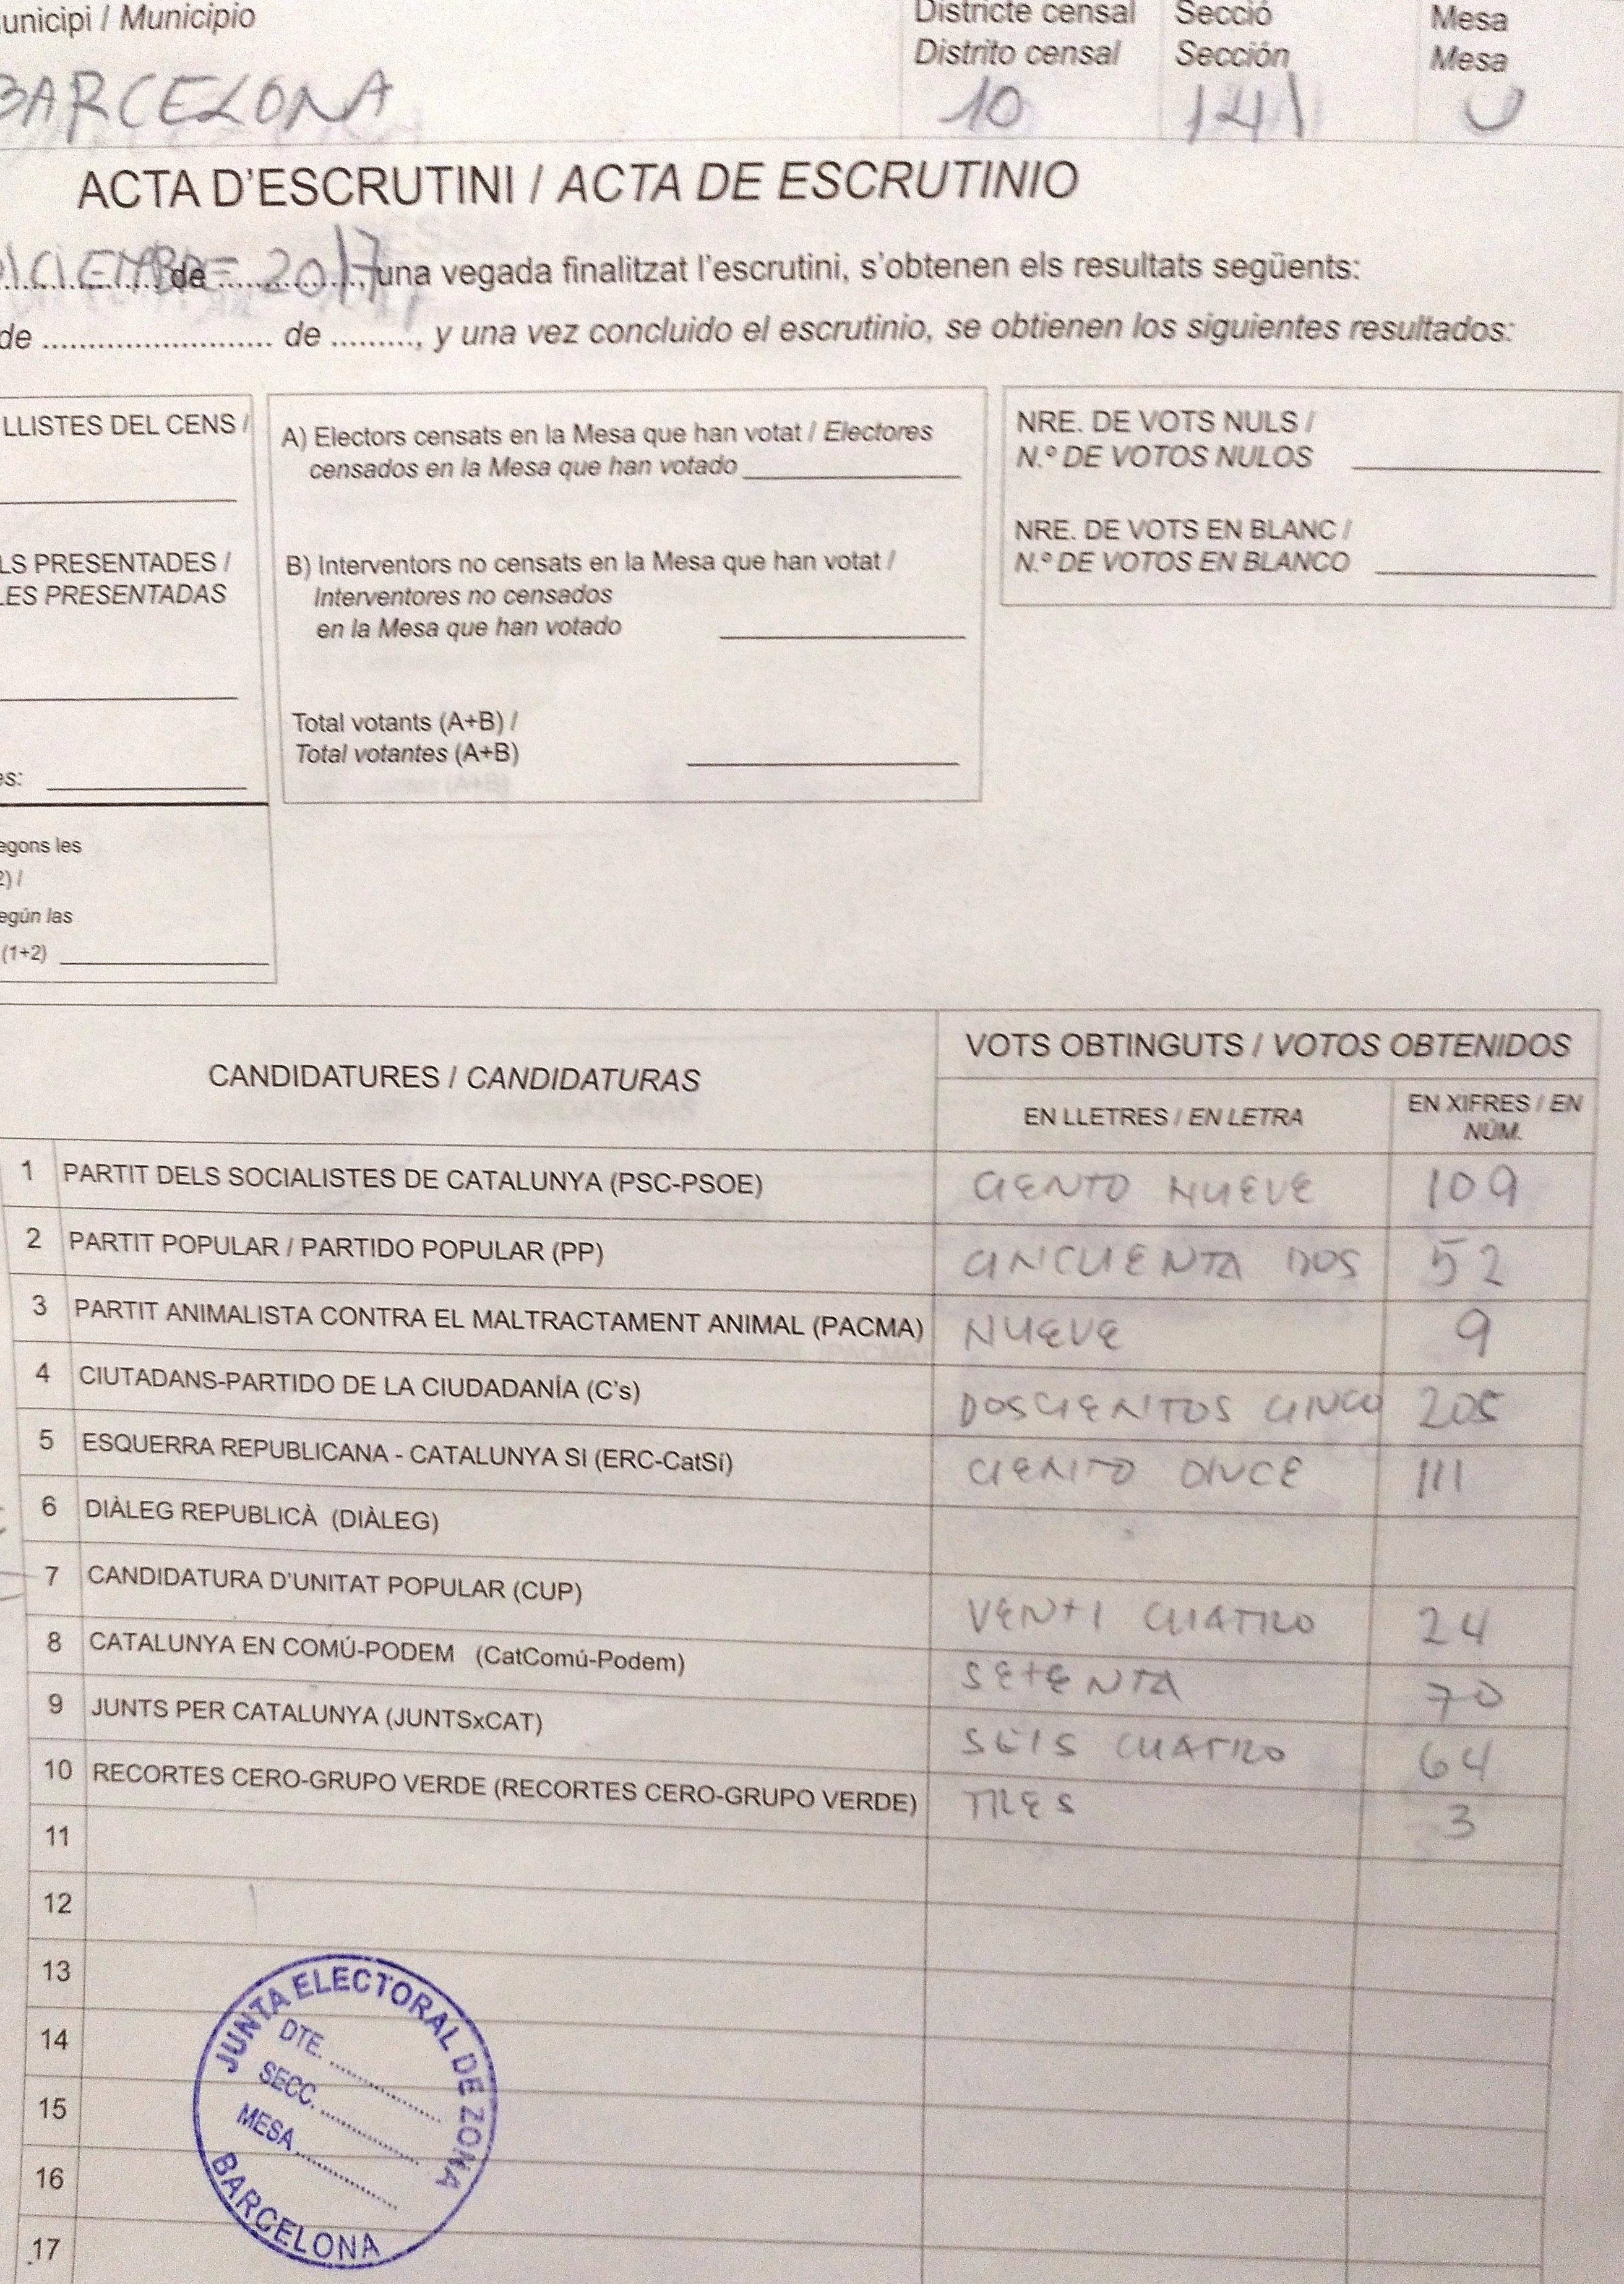 unicipi / Municipio
Districte censal
Distrito censal
Secció
Sección
Mesa
Mesa
BARCELONA
10
141
U
ACTA D'ESCRUTINI / ACTA DE ESCRUTINIO
DICIEMBRE de 2017, una vegada finalitzat l'escrutini, s'obtenen els resultats següents:
de ......................... de ........., y una vez concluido el escrutinio, se obtienen los siguientes resultados:
LLISTES DEL CENS /
LS PRESENTADES /
LES PRESENTADAS
es:
egons les
2) /
egún las
(1+2)
A) Electors censats en la Mesa que han votat / Electores
censados en la Mesa que han votado
B) Interventors no censats en la Mesa que han votat /
Interventores no censados
en la Mesa que han votado
Total votants (A+B) /
Total votantes (A+B)
NRE. DE VOTS NULS /
N.º DE VOTOS NULOS
NRE. DE VOTS EN BLANC /
N.º DE VOTOS EN BLANCO
CANDIDATURES / CANDIDATURAS
VOTS OBTINGUTS / VOTOS OBTENIDOS
EN LLETRES / EN LETRA
EN XIFRES / EN
NÚM.
1 PARTIT DELS SOCIALISTES DE CATALUNYA (PSC-PSOE) CIENTO NUEVE 109
2 PARTIT POPULAR / PARTIDO POPULAR (PP) CINCUENTA DOS 52
3 PARTIT ANIMALISTA CONTRA EL MALTRACTAMENT ANIMAL (PACMA) NUEVE 9
4 CIUTADANS-PARTIDO DE LA CIUDADANÍA (C's) DOSCIENTOS CINCO 205
5 ESQUERRA REPUBLICANA - CATALUNYA SI (ERC-CatSí) CIENTO ONCE 111
6 DIÀLEG REPUBLICÀ (DIÀLEG)
7 CANDIDATURA D'UNITAT POPULAR (CUP) VENTI CUATRO 24
8 CATALUNYA EN COMÚ-PODEM (CatComú-Podem) SETENTA 70
9 JUNTS PER CATALUNYA (JUNTSxCAT) SEIS CUATRO 64
10 RECORTES CERO-GRUPO VERDE (RECORTES CERO-GRUPO VERDE) TRES 3
11
12
13
14
15
16
17
JUNTA ELECTORAL DE ZONA
DTE. ..........
SECC. ..........
MESA ..........
BARCELONA